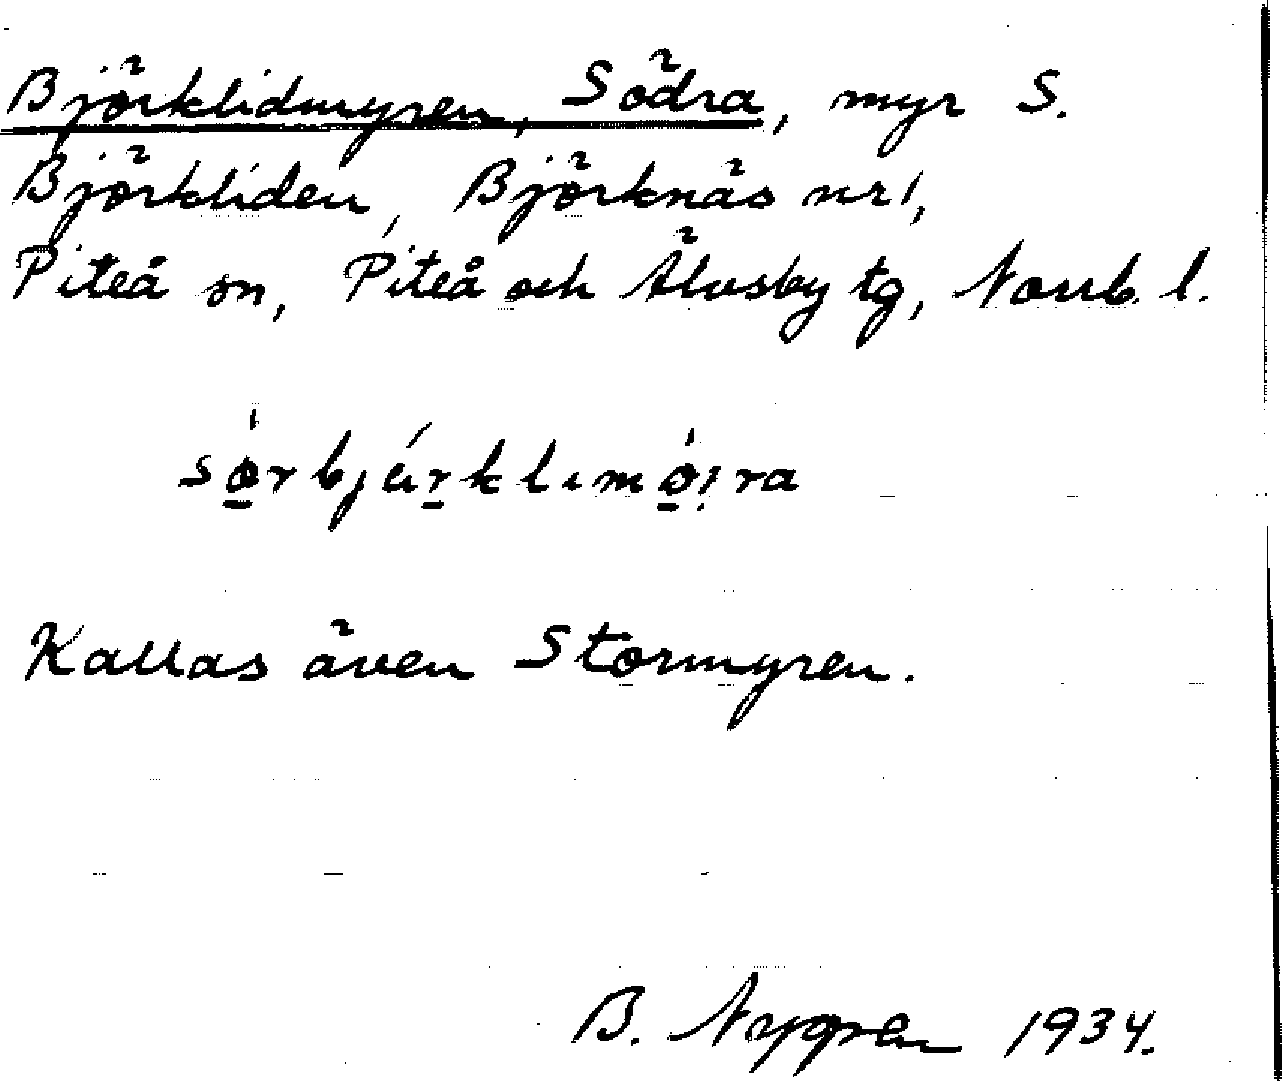 Björklidmyren, Södra, myr S.
Björkliden, Björknäs nr 1,
Piteå sn, Piteå och Älvsby tg, Norrb. l.
sǿ̱rbjúṟklımǿ̱ı̣ra
Kallas även Stormyren.
B. Nygren 1934.